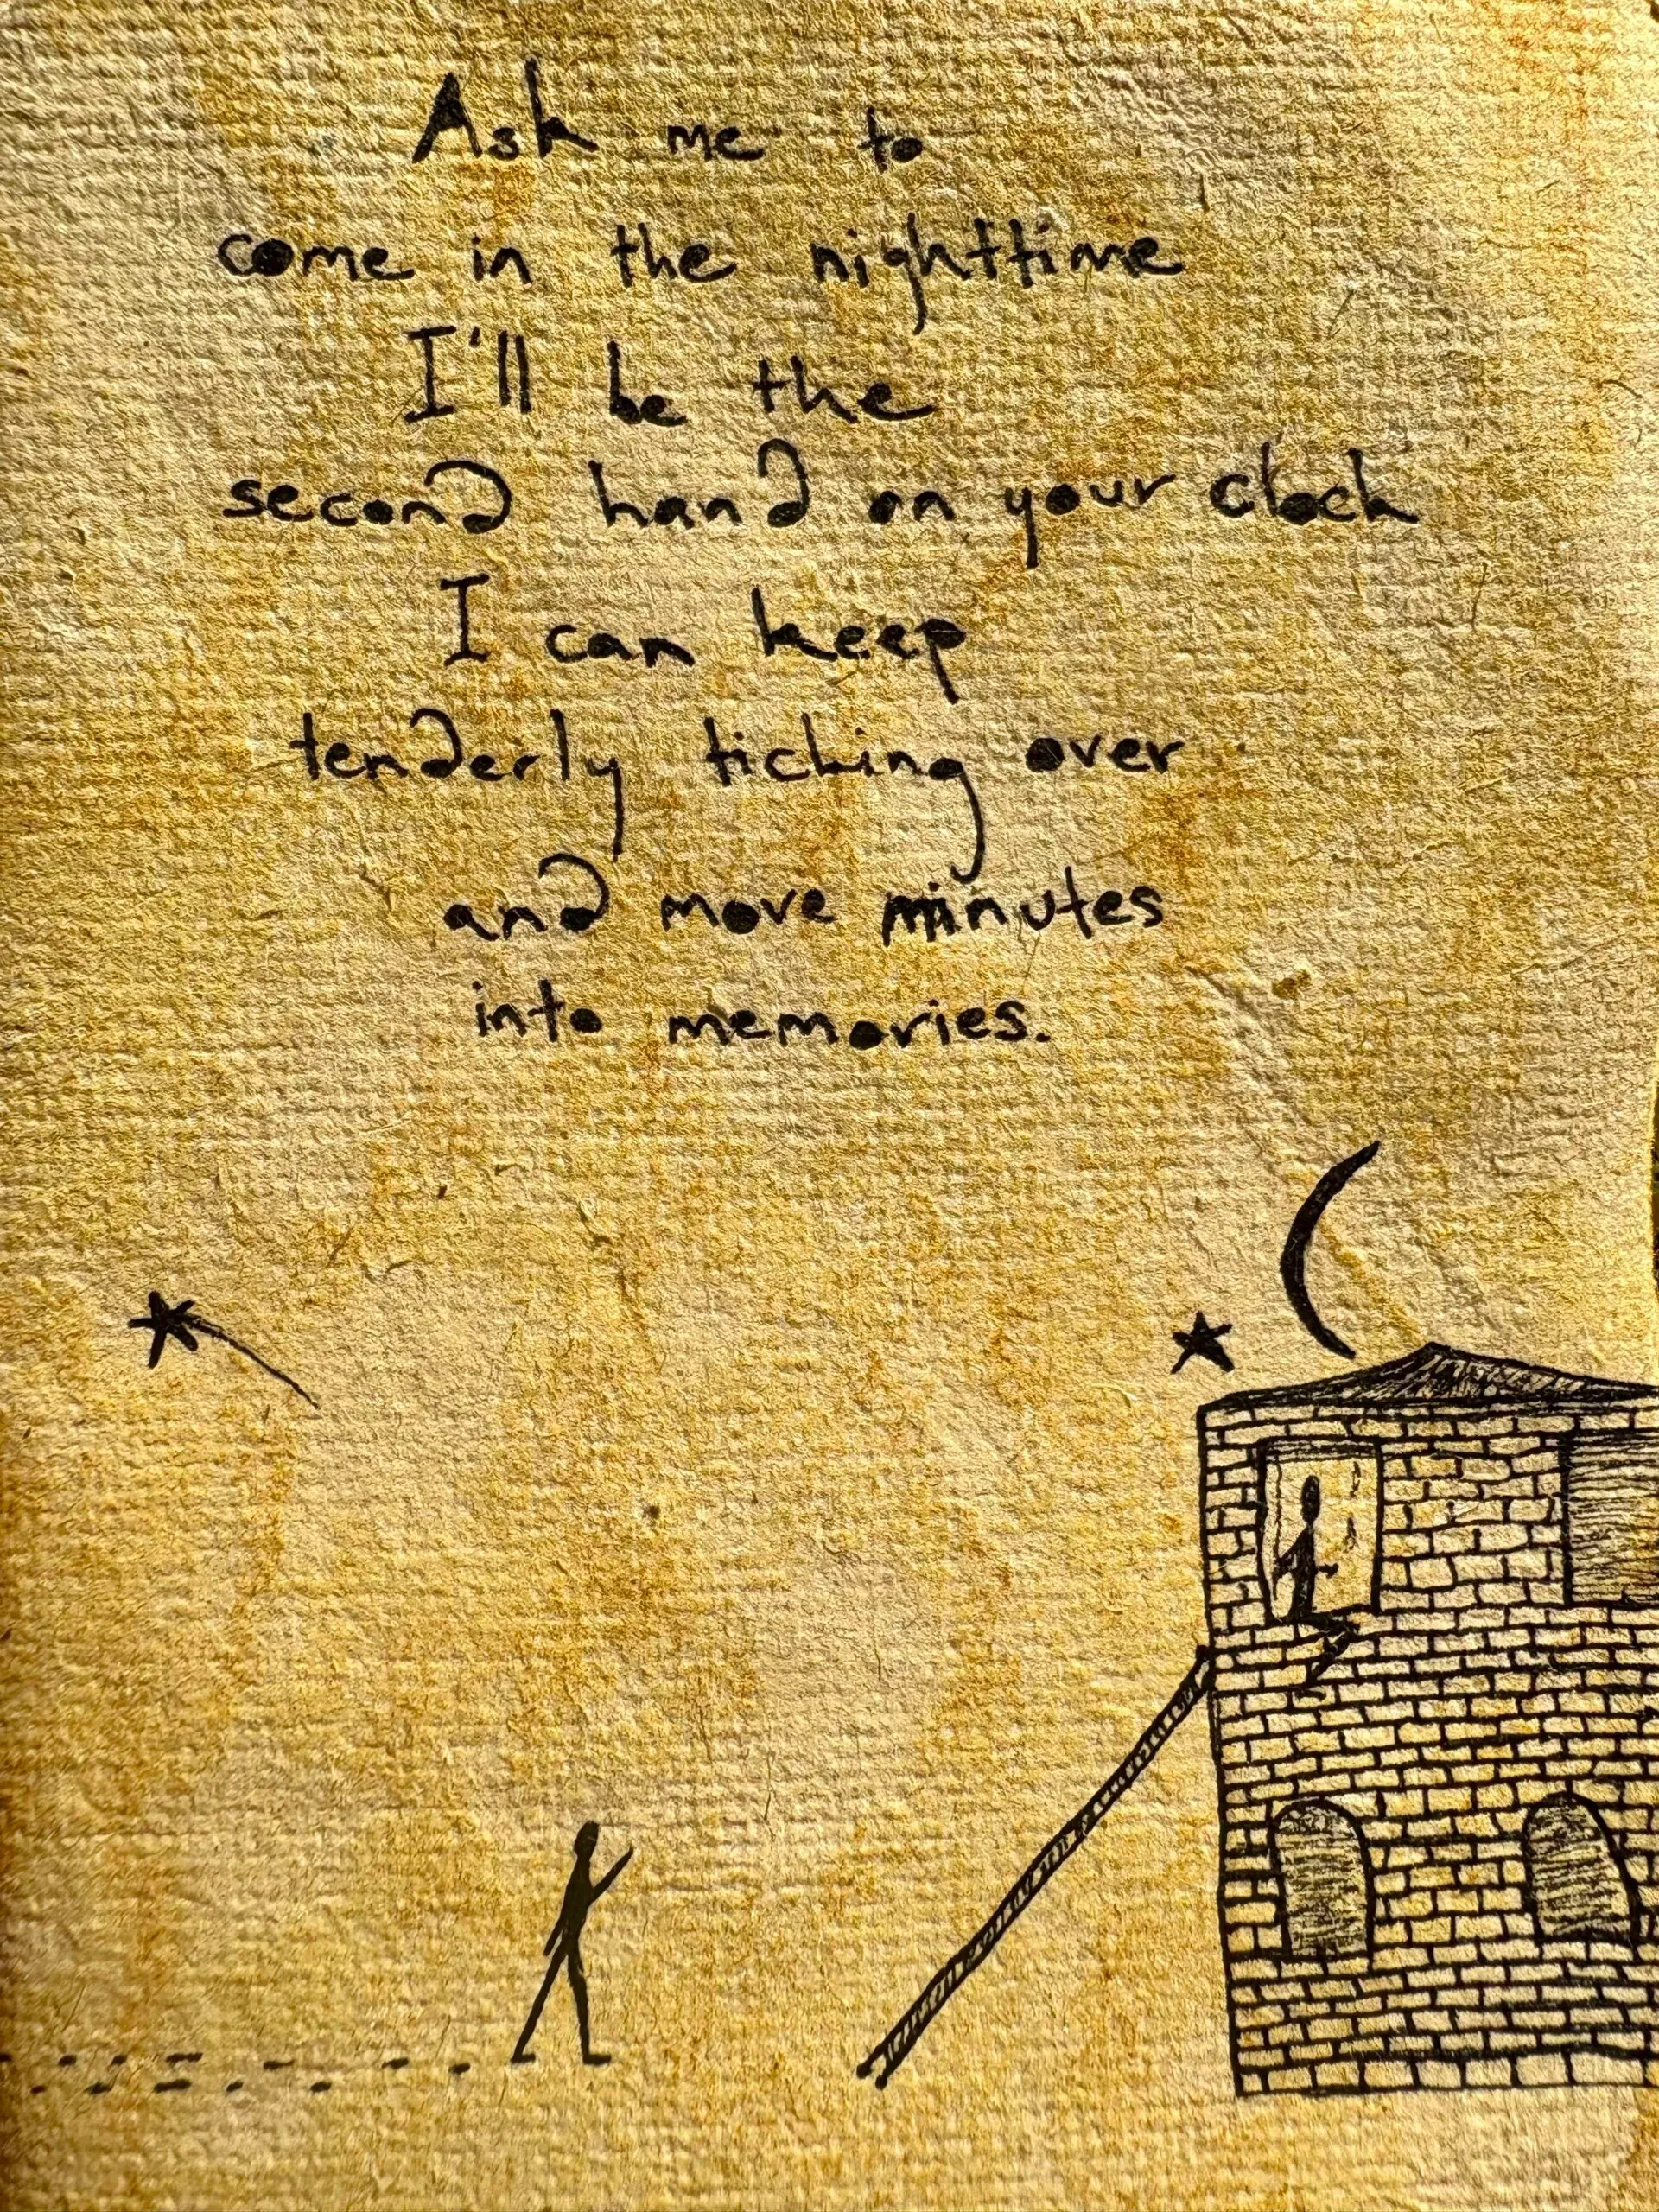 Ask me to
come in the nighttime
I'll be the
second hand on your clock
I can keep
tenderly ticking over
and move minutes
into memories.